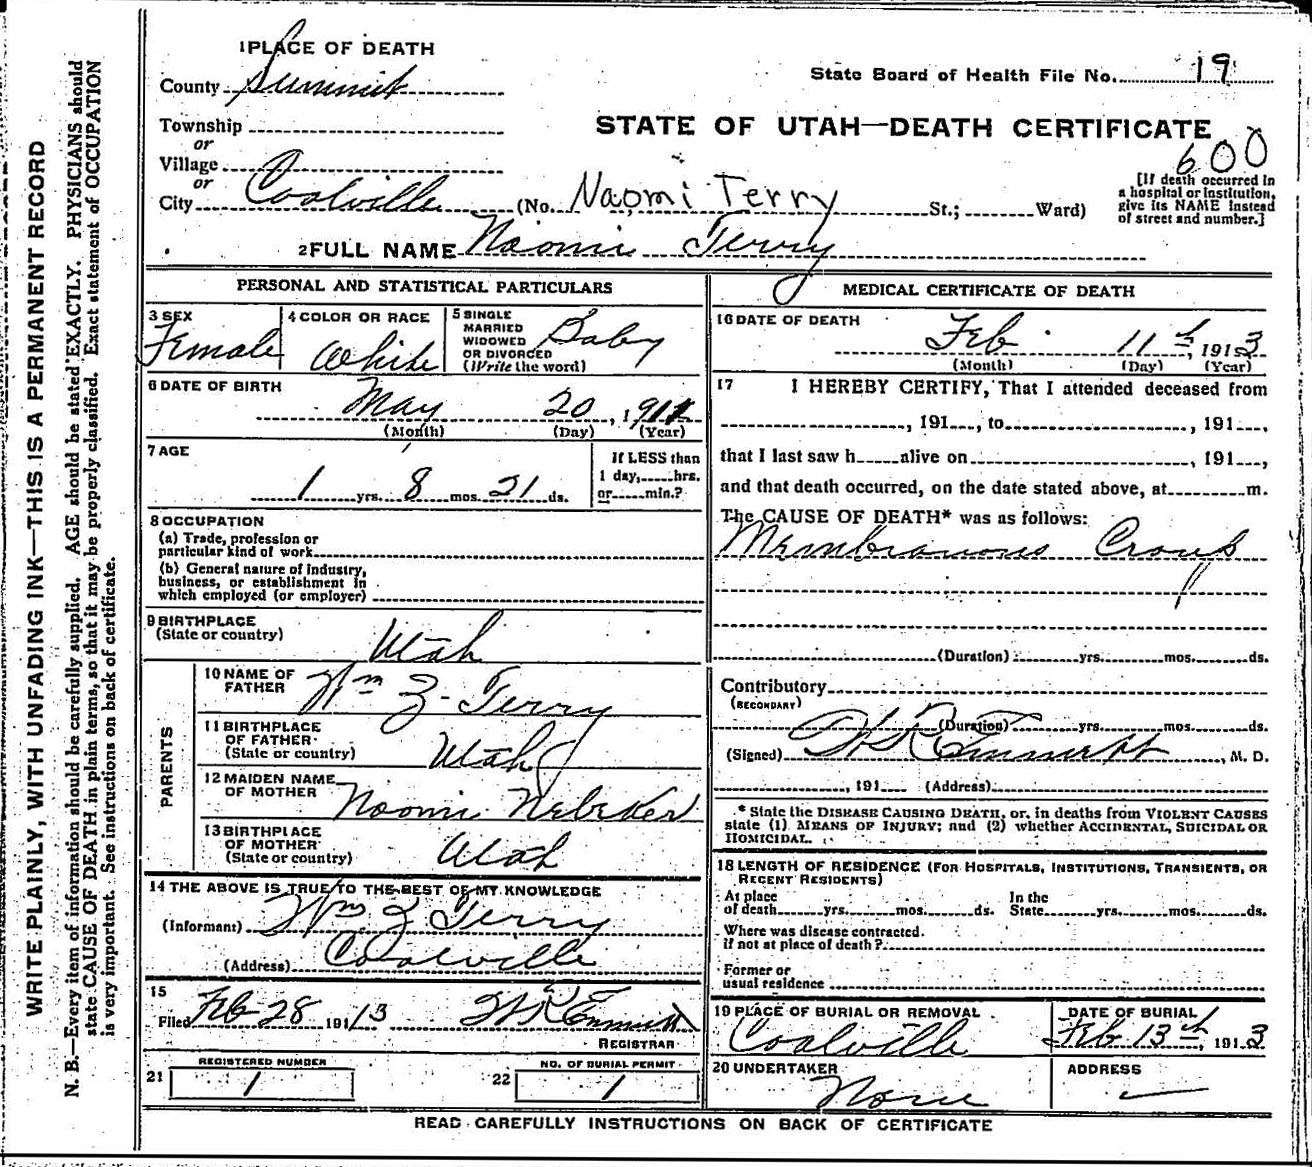 1 PLACE OF DEATH
County Summit
State Board of Health File No. 19
Township
or
Village
or
City Coalville
STATE OF UTAH—DEATH CERTIFICATE
600
(No. Naomi Terry St.; Ward)
[If death occurred in
a hospital or institution,
give its NAME instead
of street and number.]
2 FULL NAME Naomi Terry
PERSONAL AND STATISTICAL PARTICULARS
3 SEX
Female
4 COLOR OR RACE
White
5 SINGLE
MARRIED
WIDOWED
OR DIVORCED
(Write the word)
Baby
6 DATE OF BIRTH
May 20, 1911
(Month) (Day) (Year)
7 AGE
1 yrs. 8 mos. 21 ds.
If LESS than
1 day, hrs.
or min.?
8 OCCUPATION
(a) Trade, profession or
particular kind of work
(b) General nature of industry,
business, or establishment in
which employed (or employer)
9 BIRTHPLACE
(State or country)
Utah
PARENTS
10 NAME OF
FATHER
Wm Z. Terry
11 BIRTHPLACE
OF FATHER
(State or country)
Utah
12 MAIDEN NAME
OF MOTHER
Naomi Nebeker
13 BIRTHPLACE
OF MOTHER
(State or country)
Utah
14 THE ABOVE IS TRUE TO THE BEST OF MY KNOWLEDGE
(Informant) Wm Z Terry
(Address) Coalville
15
Filed Feb 28 1913
REGISTRAR
REGISTERED NUMBER
21 1
NO. OF BURIAL PERMIT
22 1
MEDICAL CERTIFICATE OF DEATH
16 DATE OF DEATH
Feb 11th, 1913
(Month) (Day) (Year)
17 I HEREBY CERTIFY, That I attended deceased from
, 191 , to , 191 ,
that I last saw h alive on , 191 ,
and that death occurred, on the date stated above, at m.
The CAUSE OF DEATH* was as follows:
Membranous Croup
(Duration) yrs. mos. ds.
Contributory
(SECONDARY)
(Duration) yrs. mos. ds.
(Signed) , M. D.
, 191 (Address)
* State the DISEASE CAUSING DEATH, or, in deaths from VIOLENT CAUSES
state (1) MEANS OF INJURY; and (2) whether ACCIDENTAL, SUICIDAL OR
HOMICIDAL.
18 LENGTH OF RESIDENCE (FOR HOSPITALS, INSTITUTIONS, TRANSIENTS, OR
RECENT RESIDENTS)
At place
of death yrs. mos. ds.
In the
State yrs. mos. ds.
Where was disease contracted.
if not at place of death?
Former or
usual residence
19 PLACE OF BURIAL OR REMOVAL
Coalville
DATE OF BURIAL
Feb 13th, 1913
20 UNDERTAKER
None
ADDRESS
READ CAREFULLY INSTRUCTIONS ON BACK OF CERTIFICATE
WRITE PLAINLY, WITH UNFADING INK—THIS IS A PERMANENT RECORD
N. B.—Every item of information should be carefully supplied. AGE should be stated EXACTLY. PHYSICIANS should
state CAUSE OF DEATH in plain terms, so that it may be properly classified. Exact statement of OCCUPATION
is very important. See instructions on back of certificate.